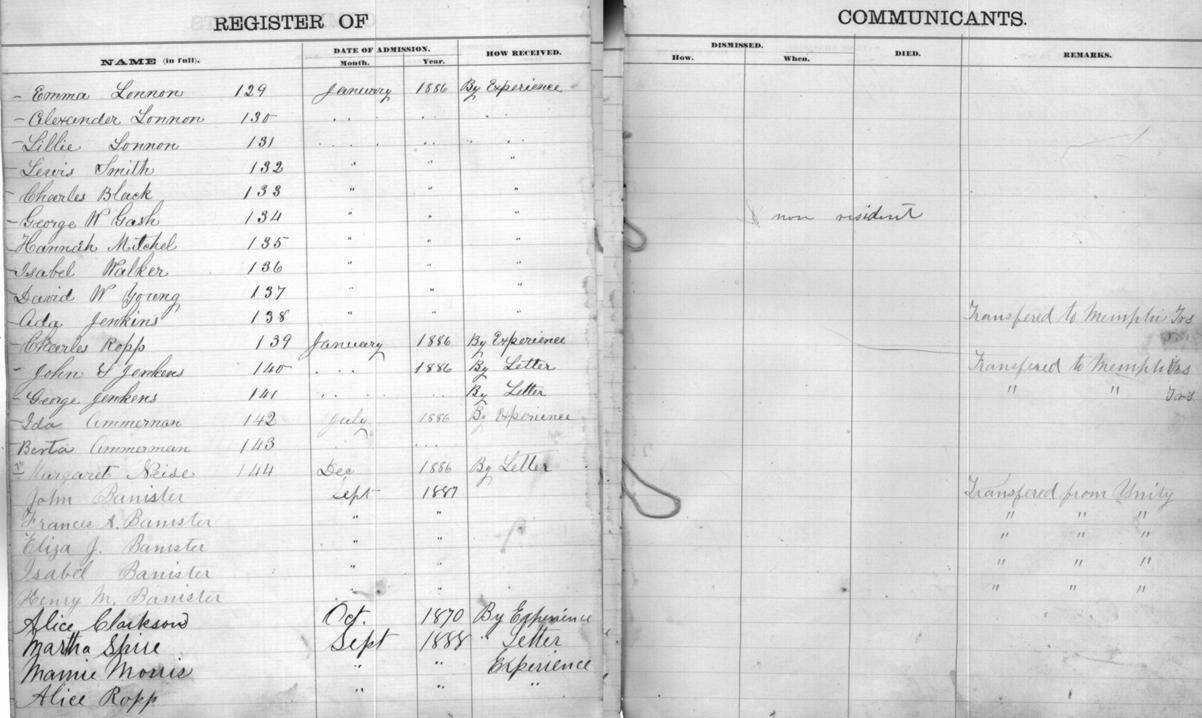 REGISTER OF COMMUNICANTS.
NAME (in full). DATE OF ADMISSION. Month. Year. HOW RECEIVED. DISMISSED. How. When. DIED. REMARKS.
- Emma Lonnon 129 January 1886 By Experience
- Alexander Lonnon 130 " " "
- Lillie Lonnon 131 " " "
- Lewis Smith 132 " " "
- Charles Black 133 " " "
- George W Gash 134 " " " non resident
- Hannah Mitchel 135 " " "
- Isabel Walker 136 " " "
- David W Young 137 " " "
- Ada Jenkins 138 " " " Transfered to Memphis
- Charles Ropp 139 January 1886 By Experience
- John & Jenkens 140 " 1886 By Letter Transfered to Memphis
- George Jenkens 141 " " By Letter " "
- Ida Ammerman 142 July 1886 By Experience
- Berta Ammerman 143 " "
Margaret Neise 144 Dec 1886 By Letter
John Banister Sept 1887 Transfered from Unity
Frances A. Banister " " " " "
Eliza J. Banister " " " " "
Isabel Banister " " " " "
Henry M. Banister " " " " "
Alice Clarkson Oct. 1870 By Experience
Martha Spire Sept 1888 " Letter
Mamie Morris " " Experience
Alice Ropp " " "